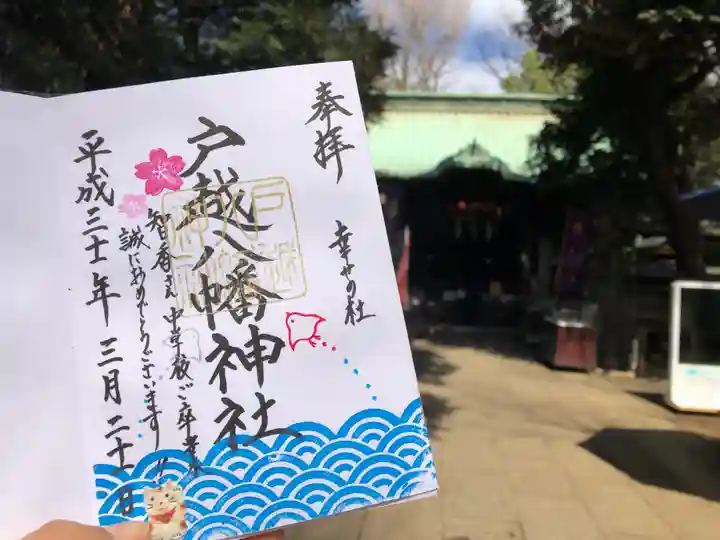 奉拝
幸せの社
戸越八幡神社
智香さま 中学校ご卒業
誠におめでとうございます!!
平成三十一年 三月 二十一日